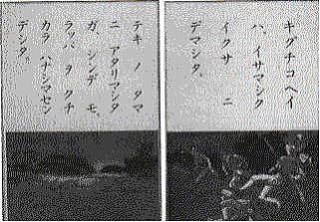 キグチコヘイ
ハ、イサマシク
イクサ ニ
デマシタ。
テキ ノ タマ
ニ アタリマシタ
ガ、シンデ モ、
ラッパ ヲ クチ
カラ ハナシマセン
デシタ。